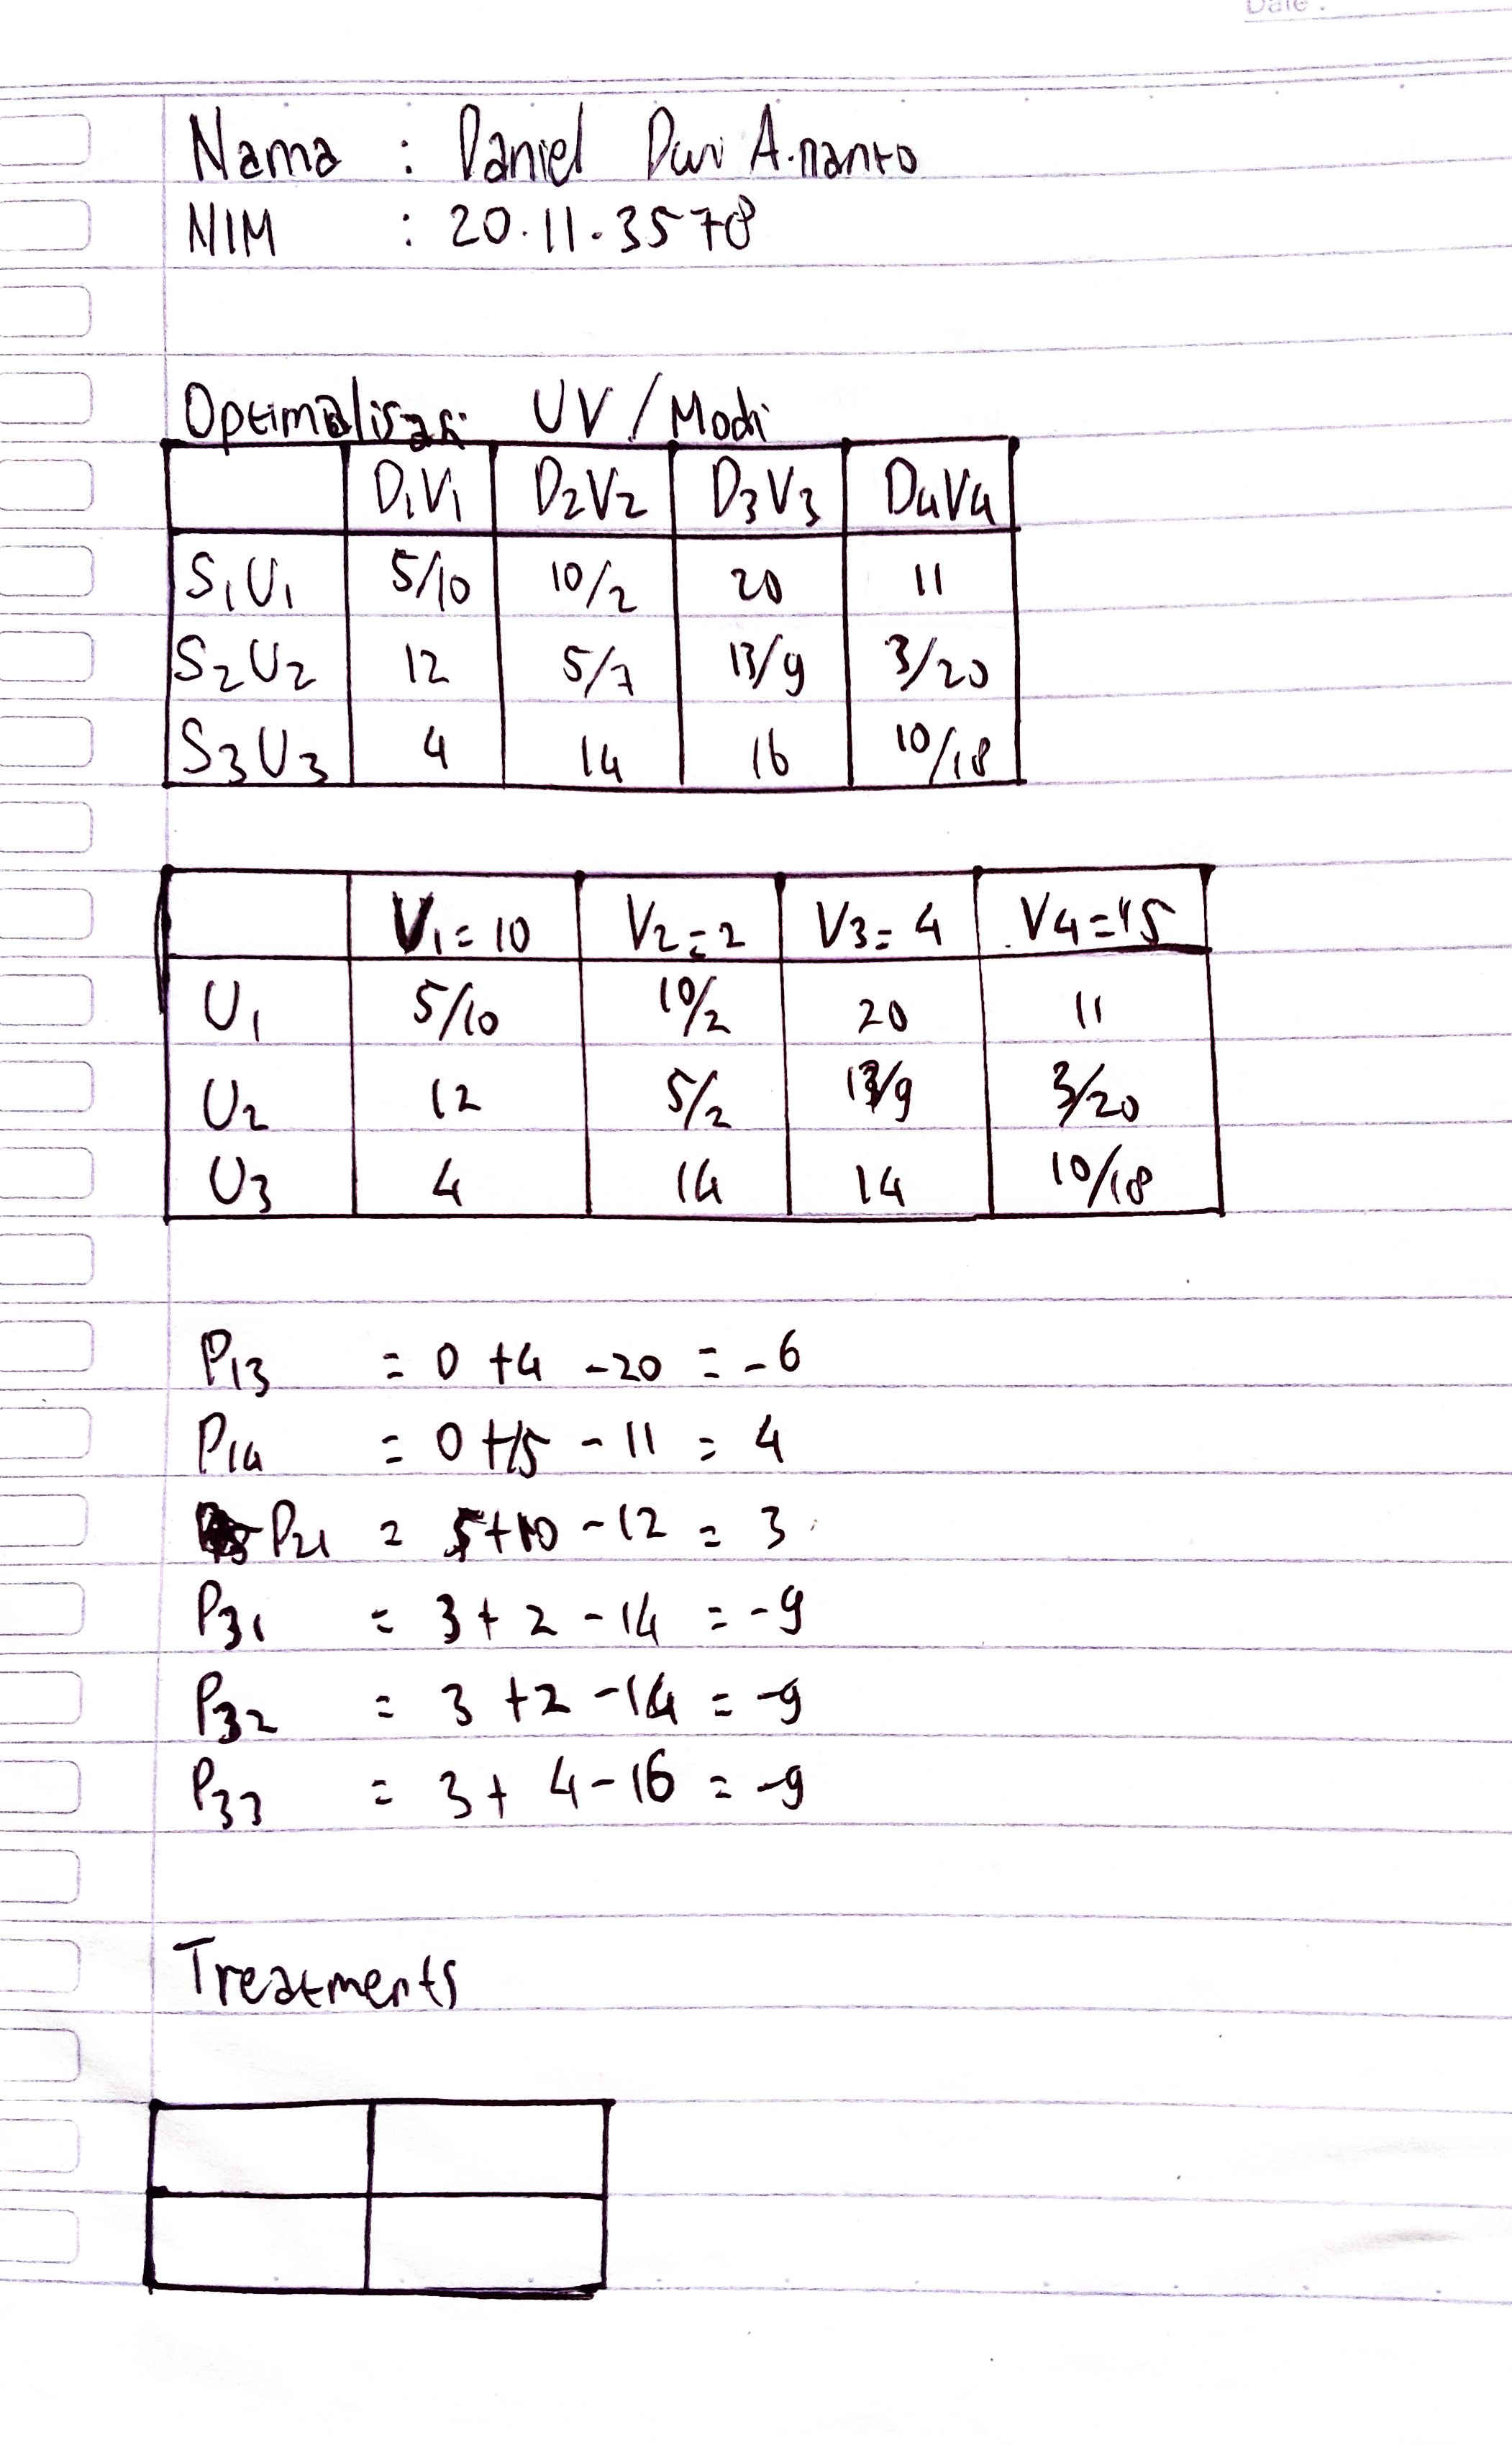 Date :
Nama : Daniel Dwi A.nanto
NIM : 20.11.3578
Optimalisasi UV / Modi
D1V1 D2V2 D3V3 D4V4
S1U1 5/10 10/2 20 11
S2U2 12 5/7 13/9 3/20
S3U3 4 14 16 10/18
V1=10 V2=2 V3=4 V4=15
U1 5/10 10/2 20 11
U2 12 5/2 13/9 3/20
U3 4 14 14 10/18
P13 = 0 +4 -20 = -6
P14 = 0 +15 - 11 = 4
P21 = 5+10 -12 = 3
P31 = 3 + 2 - 14 = -9
P32 = 3 +2 -14 = -9
P33 = 3 + 4 - 16 = -9
Treatments